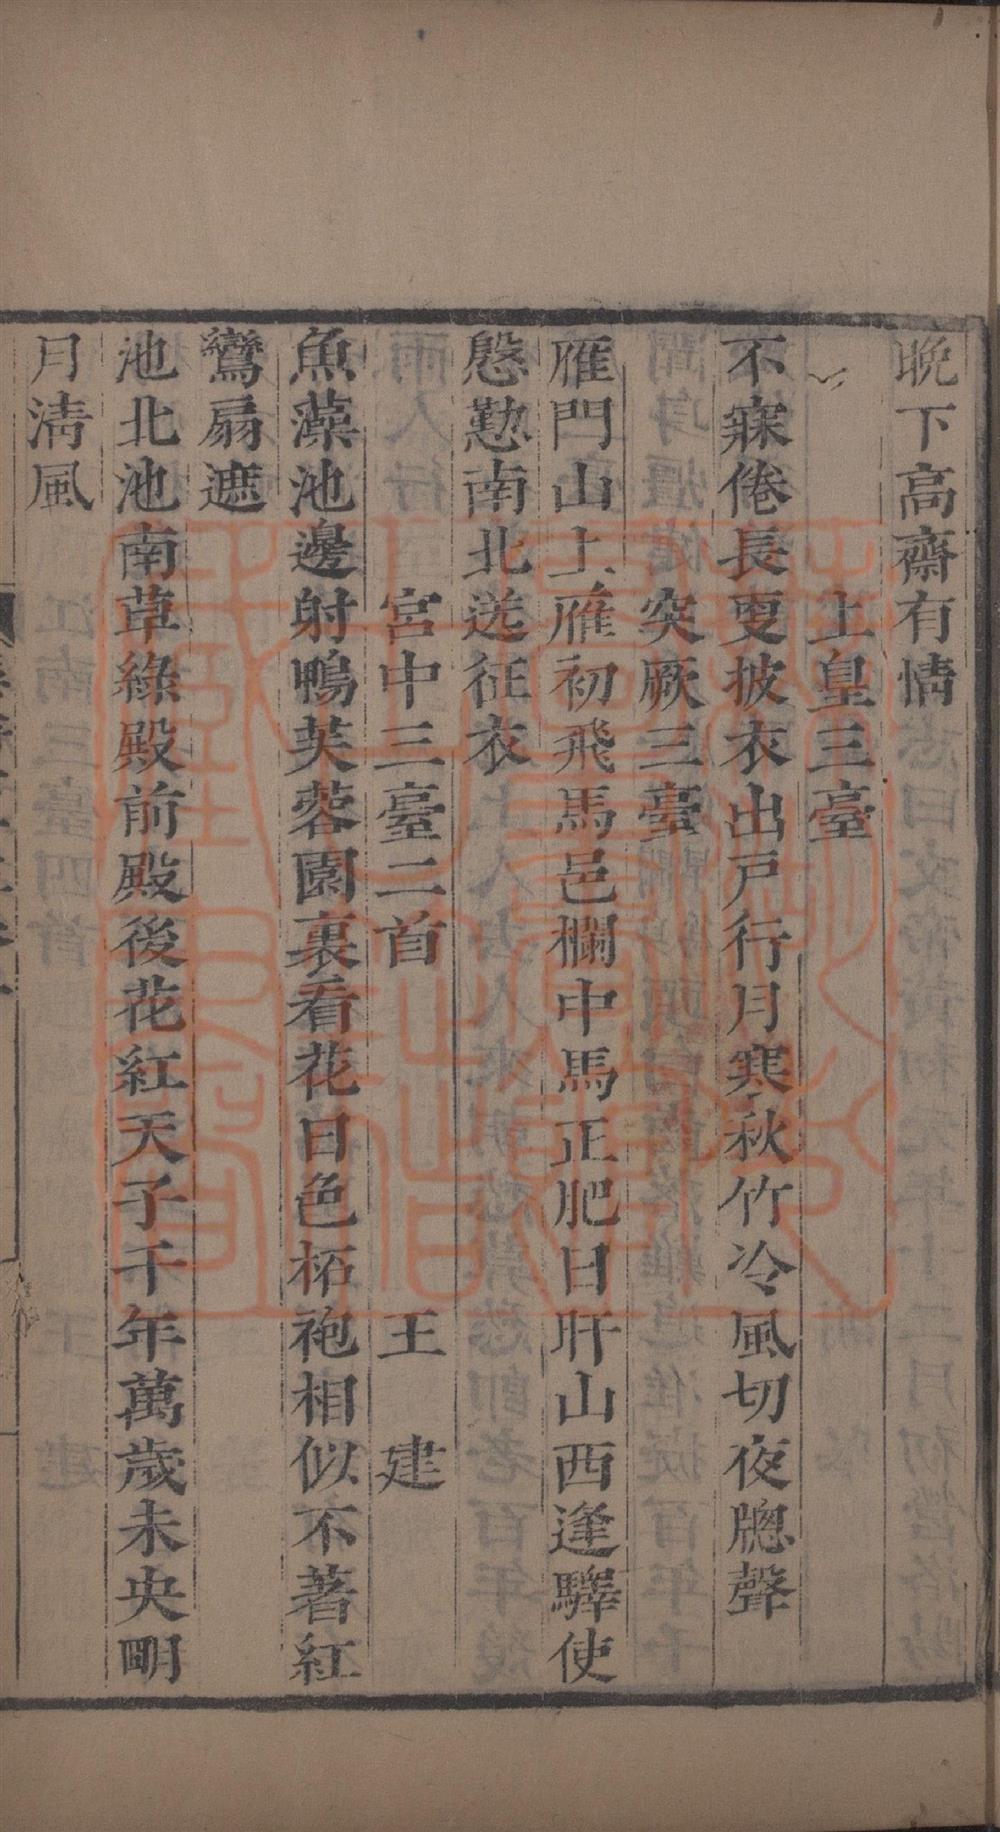 晚下高齋有情
上皇三臺
不寐倦長更披衣出戸行月寒秋竹冷風切夜牎聲
突厥三臺
雁門山上雁初飛馬邑欄中馬正肥日旰山西逢驛使
慇懃南北送征衣
宮中三臺二首　王　建
魚藻池邊射鴨芙蓉園裏看花日色柘袍相似不著紅
鸞扇遮
池北池南草綠殿前殿後花紅天子千年萬歲未央明
月淸風